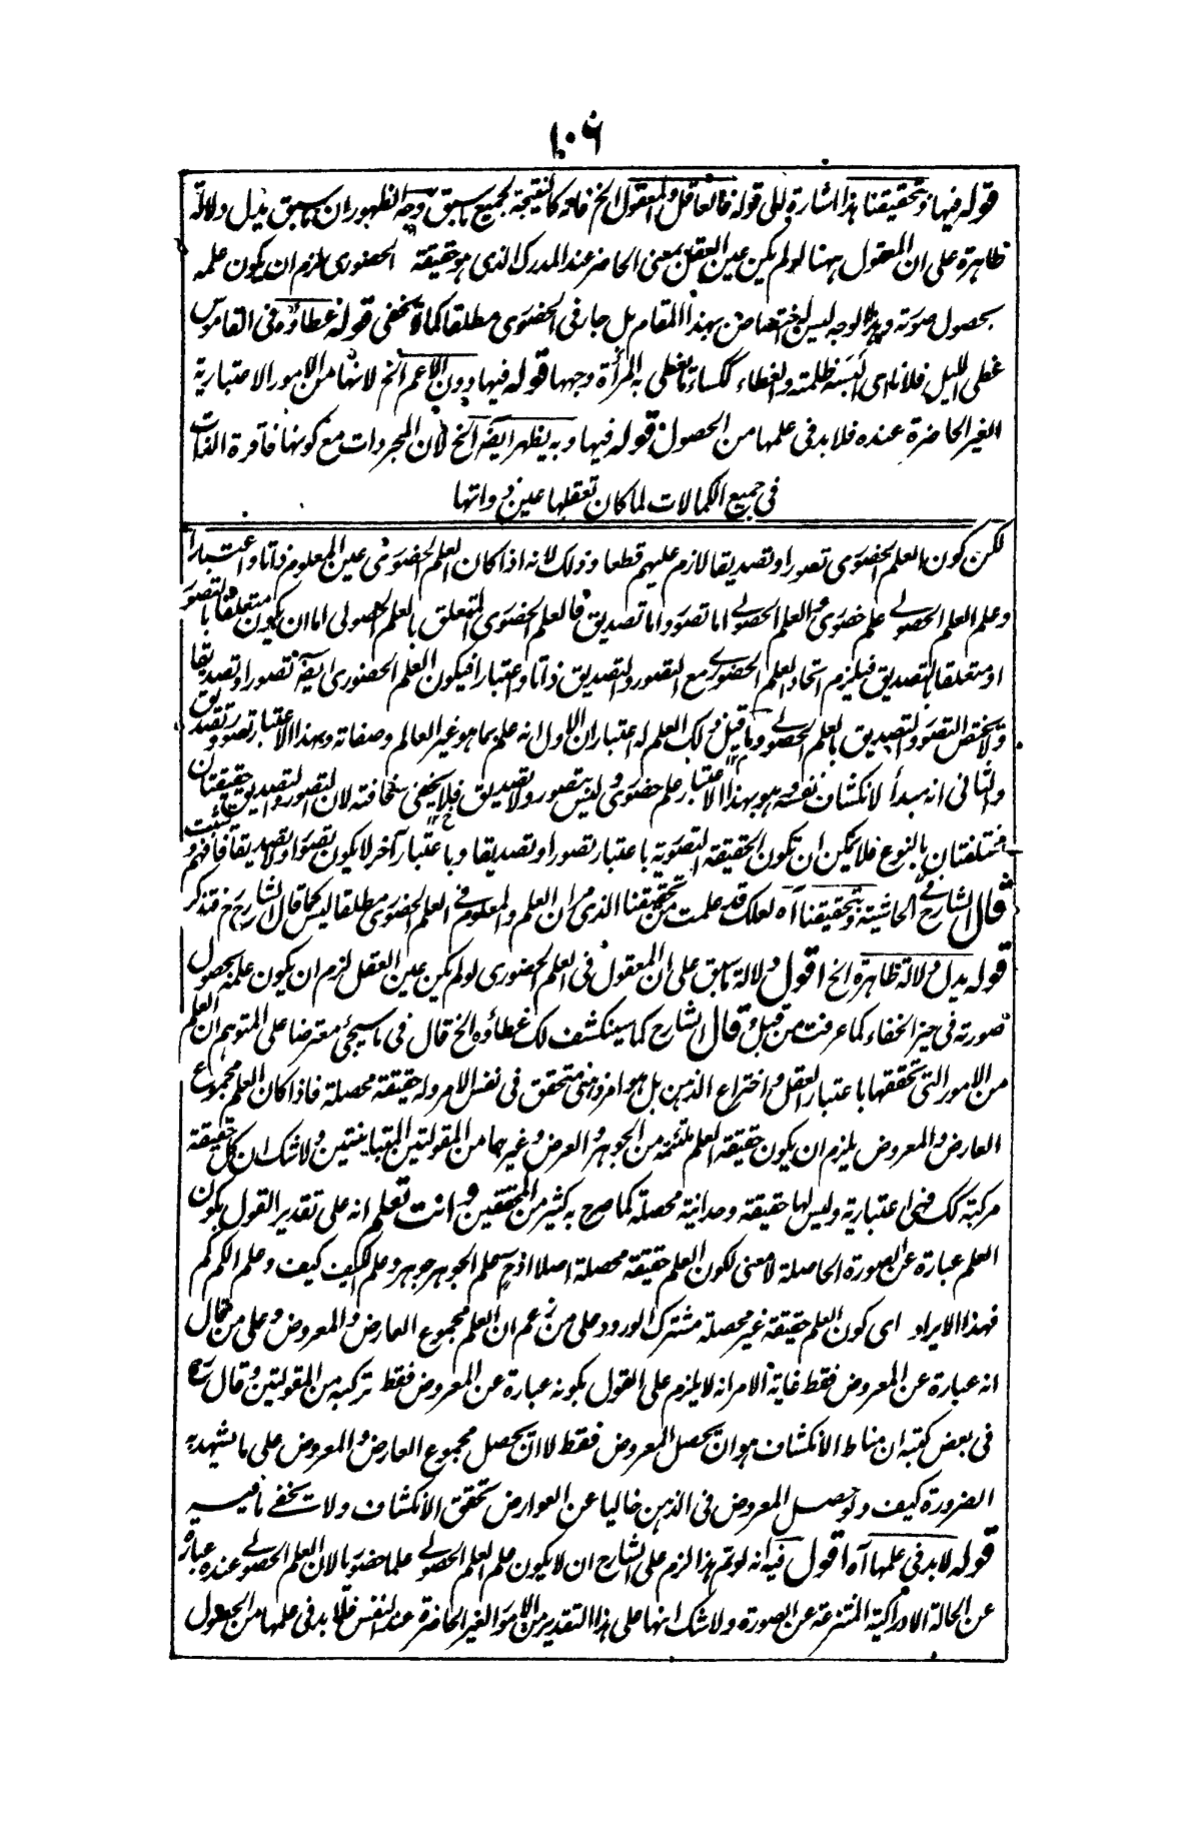 ١٠٦
قوله فيها وتحقيقنا هذا اشارة الى قوله فالعاقل والمعقول الخ فانه كالنتيجة لجميع ما سبق وجه الظهور ان ما سبق يدل دلالة
ظاهرة على ان المعقول ههنا لو لم يكن عين العقل بمعنى الحاضر عند المدرك الذى هو حقيقة الحضورى لزم ان يكون علمه
بحصول صورته وهذا الوجه ليس له اختصاص بهذا المقام بل جار فى الحضورى مطلقا كما لا يخفى قوله غطاؤه فى القاموس
غطى الليل فلانا اى البسه ظلمته والغطاء ككساء ما يغطى به المرأة وجهها قوله فيها دون الاعم الخ لانها من الامور الاعتبارية
الغير الحاضرة عنده فلا بد فى علمها من الحصول قوله فيها وبه يظهر ايضا الخ لان المجردات مع كونها فاقرة الذات
فى جميع الكمالات لما كان تعقلها عين ذواتها
لكن كون العلم الحضورى تصورا وتصديقا لازم عليهم قطعا وذلك لانه اذا كان العلم الحضورى عين المعلوم ذاتا واعتبارا
وعلم العلم الحصولى علم حضورى والعلم الحصولى اما تصور واما تصديق فالعلم الحضورى المتعلق بالعلم الحصولى اما ان يكون متعلقا بالتصور
او متعلقا بالتصديق فيلزم اتحاد العلم الحضورى مع التصور والتصديق ذاتا واعتبارا فيكون العلم الحضورى ايضا تصورا وتصديقا
ولا يختص التصور والتصديق بالعلم الحصولى وما قيل ذلك العلم له اعتباران الاول انه علم بما هو غير العالم وصفاته وبهذا الاعتبار تصور وتصديق
والثانى انه مبدأ لانكشاف نفسه وهو بهذا الاعتبار علم حضورى وليس بتصور ولا تصديق فلا يخفى سخافته لان التصور والتصديق حقيقتان
مختلفتان بالنوع فلا يمكن ان تكون الحقيقة التصورية باعتبار تصورا وتصديقا وباعتبار آخر لا يكون تصورا ولا تصديقا فافهم وتثبت
قال الشارح فى الحاشية وتحقيقنا آه لعلك قد علمت من تحقيقنا الذى مر ان العلم والمعلوم فى العلم الحضورى مطلقا ليس كما قال الشارح فتذكر
قوله يدل دلالة ظاهرة الخ اقول دلالة ما سبق على ان المعقول فى العلم الحضورى لو لم يكن عين العقل لزم ان يكون علمه بحصول
صورته فى حيز الخفاء كما عرفت من قبل قال الشارح كما سينكشف لك غطاؤه الخ قال فى ما سيجئ معترضا على المتوهم ان العلم
من الامور التى تحققها باعتبار العقل واختراع الذهن بل هو امر متحقق فى نفس الامر وله حقيقة محصلة فاذا كان العلم مجموع
العارض والمعروض يلزم ان يكون حقيقة العلم ملتئمة من الجوهر والعرض وغيرهما من المقولتين المتباينتين ولا شك ان كل حقيقة
مركبة كك فهى اعتبارية وليس لها حقيقة وحدانية محصلة كما صرح به كثير من المحققين وانت تعلم انه على تقدير القول بكون
العلم عبارة عن الصورة الحاصلة لا معنى لكون العلم حقيقة محصلة اصلا اذ ح علم الجوهر جوهر وعلم الكيف كيف وعلم الكم كم
فهذا الايراد اى كون العلم حقيقة غير محصلة مشترك الورود على من زعم ان العلم مجموع العارض والمعروض وعلى من قال
انه عبارة عن المعروض فقط غاية الامر انه لا يلزم على القول بكونه عبارة عن المعروض فقط تركبه من المقولتين وقال ره
فى بعض كتبه ان مناط الانكشاف هو ان يحصل المعروض فقط لا ان يحصل مجموع العارض والمعروض على ما يشهد به
الضرورة كيف ولو حصل المعروض فى الذهن خاليا عن العوارض تحقق الانكشاف ولا يخفى ما فيه
قوله لا بد فى علمها آه اقول فيه انه لو تم هذا لزم على الشارح ان لا يكون علم العلم الحصولى علما حضوريا لان العلم الحصولى عنده عبارة
عن الحالة الادراكية المنتزعة عن الصورة ولا شك انها على هذا التقدير من الامور الغير الحاضرة عند النفس فلا بد فى علمها من الحصول